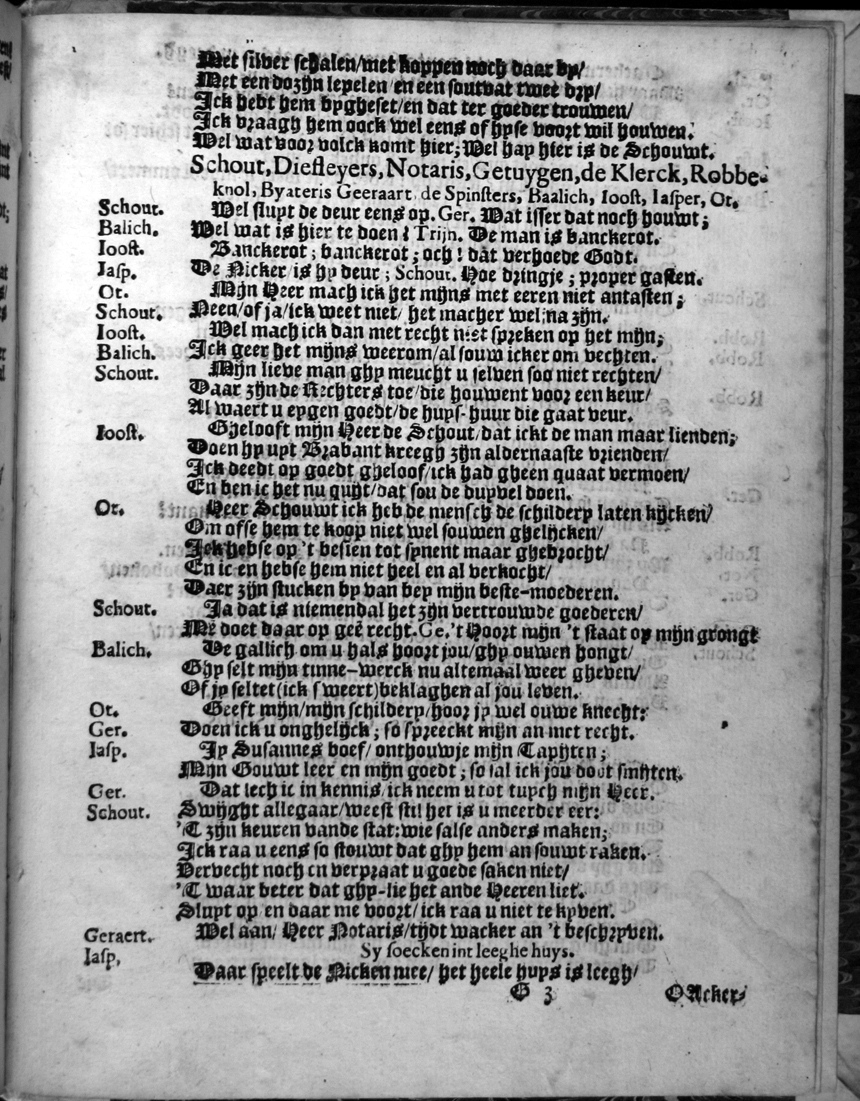 Met silver schalen/met koppen noch daar by/
Met een dozijn lepelen en een soutvat twee dry/
Ick hebt hem bygheset/en dat ter goeder trouwen/
Ick vraagh hem oock wel eens of hyse voort wil houwen.
Wel wat voor volck komt hier; Wel hay hier is de Schouwt.
Schout, Diefleyers, Notaris, Getuygen, de Klerck, Robbe-
knol, Byateris Geeraart, de Spinsters, Baalich, Ioost, Iasper, Ot.
Schout. Wel sluyt de deur eens op. Ger. Wat isser dat noch houwt;
Balich. Wel wat is hier te doen? Trijn. De man is banckerot.
Ioost. Banckerot; banckerot; och! dat verhoede Godt.
Iasp. De Nicker is hy deur; Schout. Hoe dringje; proper gasten.
Ot. Mijn Heer mach ick het mijns met eeren niet antasten;
Schout. Neen/of ja/ick weet niet/ het macher wel, na zijn.
Ioost. Wel mach ick dan met recht niet spreken op het mijn;
Balich. Ick geer het mijns weerom/al souw icker om vechten.
Schout. Mijn lieve man ghy meucht u selven soo niet rechten/
Daar zijn de Rechters toe/die houwent voor een keur/
Al waert u eygen goedt/de huys-huur die gaat veur.
Ioost. Ghelooft mijn Heer de Schout/dat ickt de man maar lienden;
Doen hy uyt Brabant kreegh zijn aldernaaste vrienden/
Ick deedt op goedt gheloof/ick had gheen quaat vermoen/
En ben ic het nu quijt/dat sou de duyvel doen.
Ot. Heer Schouwt ick heb de mensch de schildery laten kijcken/
Om ofse hem te koop niet wel souwen ghelijcken/
Ick hebse op 't besien tot synent maar ghebrocht/
En ic en hebse hem niet heel en al verkocht/
Daer zijn stucken by van bey mijn beste-moederen.
Schout. Ja dat is niemendal het zijn vertrouwde goederen/
Me doet daar op geē recht. Ge. 't Hoort mijn 't staat op mijn grongt
Balich. De gallich om u hals hoort jou/ghy ouwen hongt/
Ghy selt mijn tinne-werck nu altemaal weer gheven/
Of jy seltet (ick sweert) beklaghen al jou leven.
Ot. Geeft mijn/mijn schildery/hoor jy wel ouwe knecht:
Ger. Doen ick u onghelijck; so spreeckt mijn an met recht.
Iasp. Jy Susannes boef/ onthouwje mijn Tapijten;
Mijn Gouwt leer en mijn goedt; so sal ick jou doot smijten.
Ger. Dat lech ic in kennis, ick neem u tot tuych mijn Heer.
Schout. Swijght allegaar/weest stil het is u meerder eer:
'T zijn keuren vande stat: wie salse anders maken;
Ick raa u eens so stouwt dat ghy hem an souwt raken.
Vervecht noch en verpraat u goede saken niet/
'T waar beter dat ghy-lie het ande Heeren liet.
Sluyt op en daar me voort/ick raa u niet te kyven.
Geraert. Wel aan/ Heer Notaris/tijdt wacker an 't beschryven.
Sy soecken int leeghe huys.
Iasp, Daar speelt de Nicken mee/ het heele huys is leegh/
G 3 O Acker-